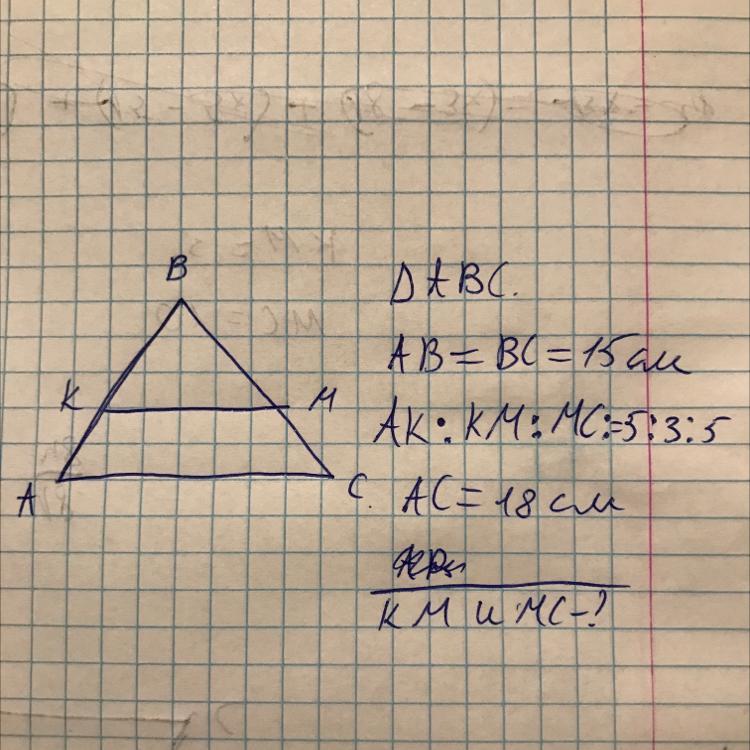 B
K
M
A
C.
Δ ABC.
AB = BC = 15 см
AK : KM : MC := 5:3:5
AC = 18 см
KM и MC - ?